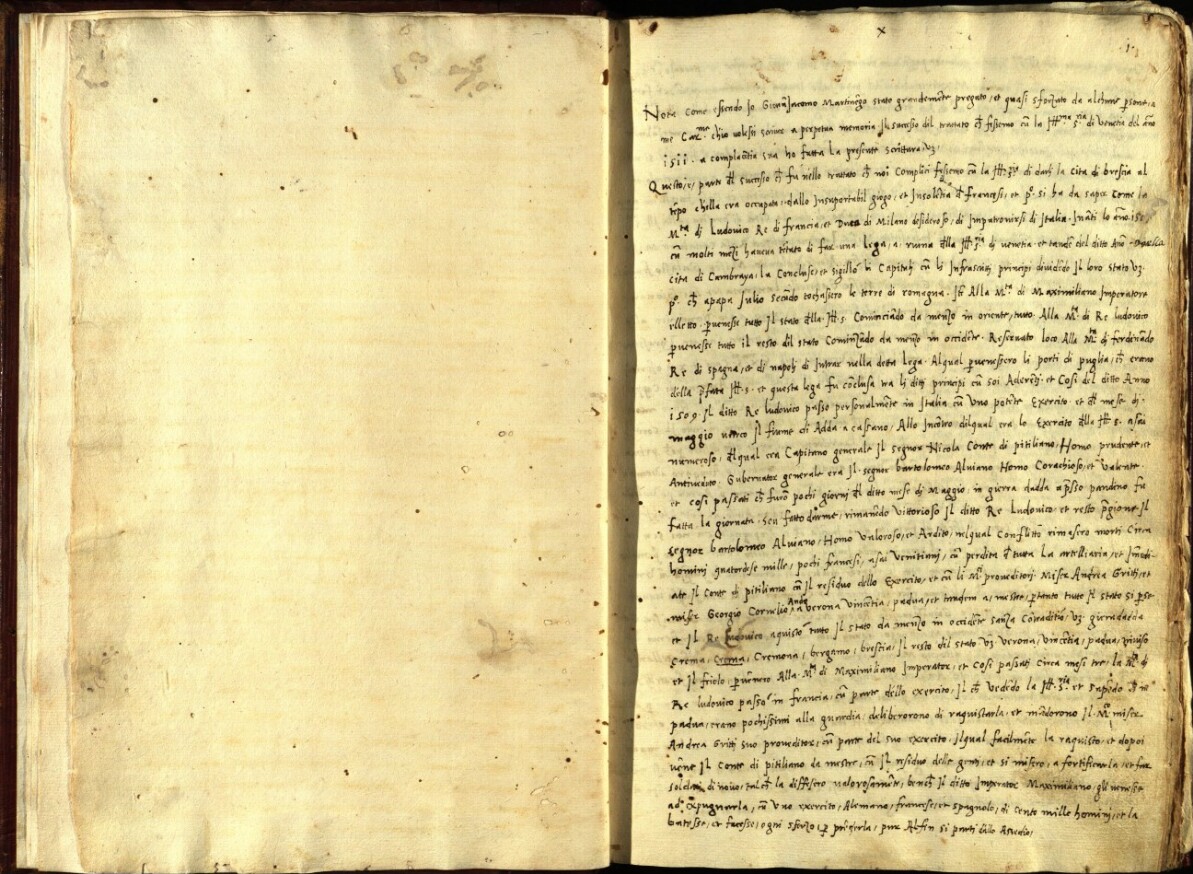 1
Nota Come essendo Jo Giovañ Jacomo Martinẽgo stato grandemẽte pregato, et quasi sforzato da alchune psone, a
me Car.me ch'io volessi scrivere a perpetua memoria Jl successo dil trattato ch̃ fessemo cũ la Jll.ma S.ria di Venetia del año
1511. a complacẽtia sua ho fatta la presente scrittura vz.
Questo, e, parte dl successo ch̃ fu nello trattato ch̃ noi Complici fessemo cũ la Jll. S.ria di darli la cita di brescia al
tẽpo chella era occupata, dallo Insuportabil giogo, et Insolẽtia d̃ Francesi, et p.º si ha da saper Come la
M.ta di Ludovico Re di francia, et Duca di Milano desideroso, di Impatronirsi di Italia. Inãti lo año
cũ molti mezi haveva tẽtato di far una lega, a ruina dlla Jll. S.ria di venetia et tandẽ del ditto Año
cita di Cambraya, la Concluse, et sigillò li Capitoli cũ li Infrascritti principi dividẽdo Jl loro stato vz.
p.º ch̃ a papa Julio secũdo tochassero le terre di romagna. Itẽ Alla M.ta di Maximiliano Imperatore
elletto. pvenesse tutto Jl stato dlla Jll. S. Comenciãdo da menzo in oriente, tutto. Alla M.ta di Re ludovico
pvenesse tutto il resto dil stato Cominzãdo da menzo in occidẽte. Reservato loco Alla M.ta di ferdinãdo
Re di spagna, et di napoli di Intrar nella detta lega. Alqual pvenessero li porti di puglia, ch̃ erano
della pfata Jll. S. et questa lega fu cõclusa tra li ditti principi cũ soi Aderẽti. et Cosi del ditto Anno
1509. Jl ditto Re ludovico passo personalmẽte in Italia cũ uno potẽte Exercito. et dl mese di
maggio Jl fiume di Adda a cassano, Allo Incõtro dilqual era lo Exercito dlla Jll. S. asai
numeroso, dlqual era Capitano generale Jl segnor Nicola Conte di pitiliano, Homo prudente, et
Gubernator generale era Jl segnor bartolomeo Alviano Homo Corachioso, et valente.
et cosi passati ch̃ furõ pochi giorni dl ditto mese di Maggio, in giera dadda apsso pandeno fu
fatta la giornata seu fatto darme, rimanẽdo vittorioso Jl ditto Re Ludovico, et resto pgione Jl
segnor bartolomeo Alviano, Homo Valoroso, et Ardito, nelqual Conflitto rimasero morti Circa
homini quatordese mille, pochi francesi, asai venitiani, cũ perdita d̃ tutta la artelliaria, et
Jl Conte di pitiliano cũ Jl residuo dello Exercito, et cũ li M.ci proveditori. Miser Andrea Gritti, et
miser Georgio Cornelio, Andò a verona vincẽtia, padua, et tandem a, mestre, ptanto tutto Jl stato si pse
et Jl Re Ludovico aquistò tutto Jl stato da menzo in occidẽte sanza Cõtraditiõ, vz. gieradadda
Crema, Crema, Cremona, bergamo, brescia, Jl resto dil stato vz verona, vincẽtia, padua,
et Jl friolo, pvẽnero Alla M.ta di Maximiliano Imperator, et Cosi passati Circa mesi tre, la M.ta di
Re ludovico passò in francia, cũ parte dello exercito, Jl ch̃ vedẽdo la Jll. S.ria et sapẽdo ch̃ in
padua, erano pochissimi alla guardia, deliberorono di raquistarla, et mãdorono Jl M.co miser
Andrea Gritti suo proveditor, cũ parte del suo exercito, Jlqual facilmẽte la raquistò, et dopoi
vẽne Jl Conte di pitiliano da mestre, cũ Jl residuo delle gẽti, et si misero, a fortificarla, et far
soldati di novo, talch̃ la diffesero valorosamẽte, bench̃ Jl ditto Imperator Maximiliano, gli venesse
ad expugnarla, cũ uno exercito, Alemano, francese, et spagnolo, di cento mille homini, et la
batesse, et facesse, ogni sforzo p prẽderla, pur Alfin si parti dallo Assedio,